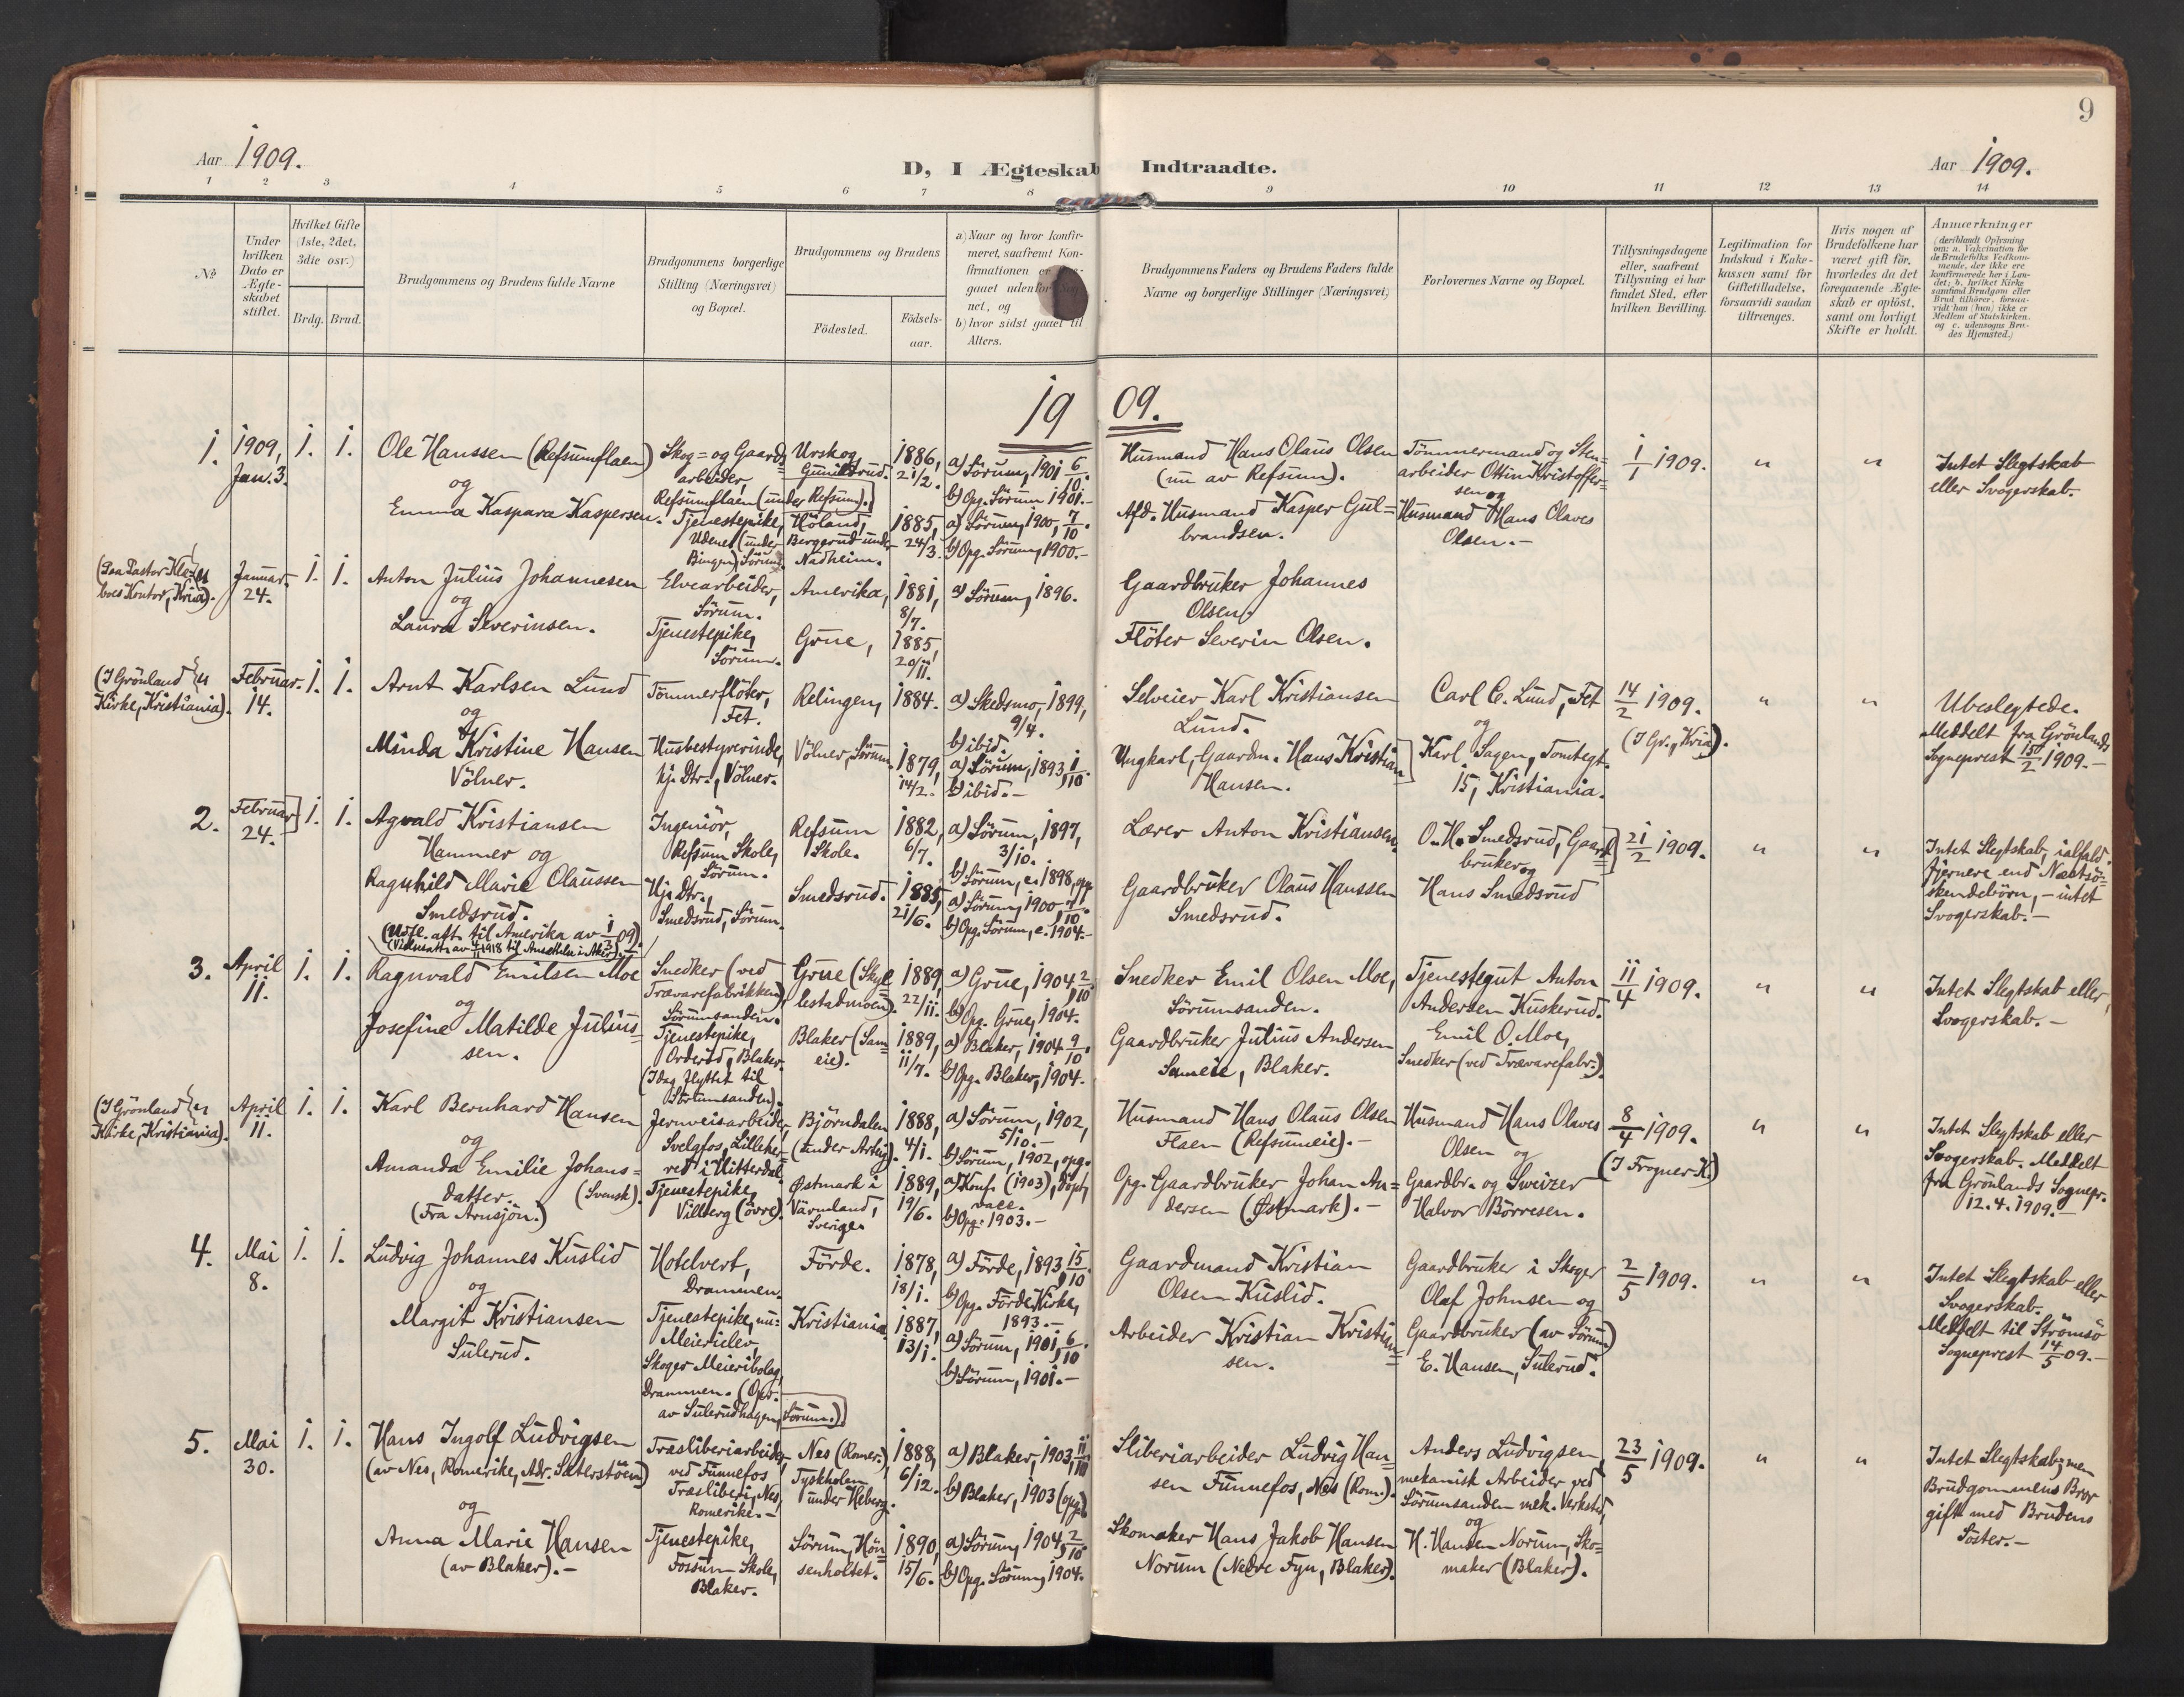 9
Aar 1909.
D, I Ægteskab Indtraadte.
Aar 1909.
1 2 3 4 5 6 7 8 9 10 11 12 13 14
No
Under hvilken Dato er Ægte-skabet stiftet.
Hvilket Gifte (1ste, 2det, 3die osv.)
Brdg. Brud.
Brudgommens og Brudens fulde Navne
Brudgommens borgerlige Stilling (Næringsvei) og Bopæl.
Brudgommens og Brudens
Födested.
Födsels-aar.
a) Naar og hvor konfir-
meret, saafremt Kon-
firmationen er
gaaet udenfor
net, og
b) hvor sidst gaaet til
Alters.
Brudgommens Faders og Brudens Faders fulde
Navne og borgerlige Stillinger (Næringsvei)
Forlovernes Navne og Bopæl.
Tillysningsdagene
eller, saafremt
Tillysning ei har
fundet Sted, efter
hvilken Bevilling.
Legitimation for
Indskud i Enke-
kassen samt for
Giftetilladelse,
forsaavidt saadan
tiltrænges.
Hvis nogen af
Brudefolkene har
været gift för,
hvorledes da det
foregaaende Ægte-
skab er oplöst,
samt om lovligt
Skifte er holdt.
Anmærkninger
(deriblandt Oplysning
om: a. Vakcination for
de Brudefolks Vedkom-
mende, der ikke ere
konfirmerede her i Lan-
det; b. hvilket Kirke-
samfund Brudgom eller
Brud tilhörer, forsaa-
vidt han (hun) ikke er
Medlem af Statskirken.
og c. udensogns Bru-
des Hjemsted.)
1909.
1. 1909, Jan. 3. 1. 1.
Ole Hanssen (Refsumflaen)
og
Emma Kaspara Kaspersen.
Skog- og Gaards-
arbeider,
Refsumflaen (under Refsum).
Tjenestepike,
Udenes (under
Bingen) Sörum.
Urskog,
Gunilsrud.
Höland,
Bergerud under
Nadheim.
1886, 21/2.
1885, 24/3.
a) Sörum, 1901 6/10.
b) Opg. Sörum 1901.-
a) Sörum, 1900, 7/10.
b) Opg. Sörum, 1900.-
Husmand Hans Olaus Olsen
(nu av Refsum).
Afd. Husmand Kasper Gul-
brandsen.
Tömmermand og Sten-
arbeider Ottin Kristoffer-
sen og
Husmand Hans Olaves
Olsen.-
1/1 1909.
" "
Intet Slegtskab
eller Svogerskab.
(Paa Pastor Kla-
boes Kontor, Kria).
" Januar. 24. 1. 1.
Anton Julius Johannesen
og
Laura Severinsen.
Elvearbeider,
Sörum.
Tjenestepike,
Sörum.
Amerika,
Grue,
1881, 8/7.
1885, 20/11.
a) Sörum, 1896.
Gaardbruker Johannes
Olsen.
Flöter Severin Olsen.
(I Grönland
Kirke, Kristiania).
" Februar. 14. 1. 1.
Arnt Karlsen Lund
og
Minda Kristine Hansen
Völner.
Tömmerflöter,
Fet.
Husbestyrerinde,
hj. Dtr., Völner.
Relingen,
Völner, Sörum.
1884.
1879, 14/2.
a) Skedsmo, 1899,
9/4.
b) ibid.
a) Sörum, 1893, 1/10.
b) ibid.-
Selveier Karl Kristiansen
Lund.
Ungkarl, Gaardm. Hans Kristian
Hansen.
Carl C. Lund, Fet
og
Karl Sagen, Tomtegt.
15, Kristiania.
14/2 1909.
(I Gr., Kria).
" "
Ubeslegtede.
Meddelt fra Grönlands
Sogneprest 15/2 1909.-
2. Februar 24. 1. 1.
Agvald Kristiansen
Hammer og
Ragnhild Marie Olaussen
Smedsrud.
(Udfl. att. til Amerika av 1/3 09).
Ingeniör,
Refsum Skole,
Sörum.
Hj. Dtr.,
Smedsrud, Sörum.
Refsum
Skole.
Smedsrud.
1882, 6/7.
1885, 21/6.
a) Sörum, 1897,
3/10.
b) Sörum, c. 1898, opg.
a) Sörum, 1900, 7/10.
b) Opg. Sörum, c. 1904.-
Lærer Anton Kristiansen.
Gaardbruker Olaus Hanssen
Smedsrud.
O. H. Smedsrud, Gaard-
bruker og
Hans Smedsrud
21/2 1909.
" "
Intet Slegtskab, ialfald
fjernere end Næstsö-
skendebörn, - intet
Svogerskab.-
3. April 11. 1. 1.
Ragnvald Emilsen Moe
og
Josefine Matilde Julius-
sen.
Snedker (ved
Trævarefabrikken),
Sörumsanden.
Tjenestepike,
Orderud, Blaker.
(Idag flyttet til
Sörumsanden).
Grue (Skyl-
lestadmoen).
Blaker (Sam-
eie).
1889, 22/11.
1889, 11/7.
a) Grue, 1904 2/10.
b) Opg. Grue, 1904.
a) Blaker, 1904 9/10.
b) Opg. Blaker, 1904.
Snedker Emil Olsen Moe,
Sörumsanden.
Gaardbruker Julius Andersen
Sameie, Blaker.
Tjenestegut Anton
Andersen Kuskerud.
Emil O. Moe,
Snedker (ved Trævarefabr.).
11/4 1909.
" "
Intet Slegtskab eller
Svogerskab.-
(I Grönland
Kirke, Kristiania).
" April 11. 1. 1.
Karl Bernhard Hansen
og
Amanda Emilie Johans-
datter. (Svensk).
(Fra Arnsjön.)
Jernveisarbeider,
Svelgfos, Lilleher-
red i Hitterdal.
Tjenestepike,
Vilberg (övre).
Björndalen
(under Arteig).
Østmark i
Värmland,
Sverige.
1888, 4/1.
1889, 19/6.
a) Sörum, 1902,
5/10.-
b) Sörum, 1902, opg.
a) Konf. (1903), döpt,
vacc.
b) Opg. 1903.-
Husmand Hans Olaus Olsen
Flaen (Refsumeie).-
Opg. Gaardbruker Johan An-
dersen (Østmark).-
Husmand Hans Olaves
Olsen og
Gaardbr. og Sveizer
Halvor Börresen.
8/4 1909.
(I Frogner K.)
" "
Intet Slegtskab eller
Svogerskab. Meddelt
fra Grönlands Sognepr.
12.4.1909.-
4. Mai 8. 1. 1.
Ludvig Johannes Kuslid
og
Margit Kristiansen
Sulerud.
Hotelvert,
Drammen.
Tjenestepike, nu
Meierielev,
Skoger Meieribolag,
Drammen. (Opr.
av Sulerudhagen, Sörum.)
Förde.
Kristiania.
1878, 18/1.
1887, 13/1.
a) Förde, 1893, 15/10.
b) Opg. Förde Kirke,
1893.-
a) Sörum, 1901, 6/10.
b) Sörum, 1901.-
Gaardmand Kristian
Olsen Kuslid.
Arbeider Kristian Kristian-
sen.
Gaardbruker i Skoger
Olaf Johnsen og
Gaardbruker (av Sörum)
E. Hansen, Sulerud.
2/5 1909.
" "
Intet Slegtskab eller
Svogerskab.
Meddelt til Strömsö
Sogneprest 14/5 09.-
5. Mai 30. 1. 1.
Hans Ingolf Ludvigsen
(av Nes, Romerike, Adr. Sæterstöen)
og
Anna Marie Hansen
(av Blaker).-
Træsliberiarbeider
ved Funnefos
Træsliberi, Nes,
Romerike.-
Tjenestepike,
Fossum Skole,
Blaker.
Nes (Romer.),
Tyskholen
under Heberg.
Sörum, Hön-
senholtet.
1888, 6/12.
1890, 15/6.
a) Blaker, 1903, 11/10
b) Blaker, 1903 (opg.)
a) Sörum, 1904, 2/10.
b) Opg. Sörum, 1904.
Sliberiarbeider Ludvig Han-
sen Funnefos, Nes (Rom.).
Skomaker Hans Jakob Hansen
Norum (Nedre Fyn, Blaker).
Anders Ludvigsen,
mekanisk Arbeider ved
Sörumsanden mek. Verksted,
og
H. Hansen Norum, Sko-
maker (Blaker).
23/5 1909.
" "
Intet Slegtskab; men
Brudgommens Bror
gift med Brudens
Söster.-